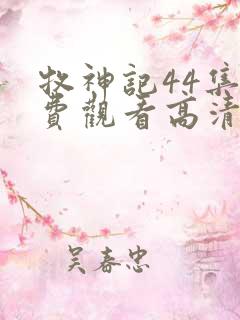 牧神記44集
費觀看高清
吴春忠